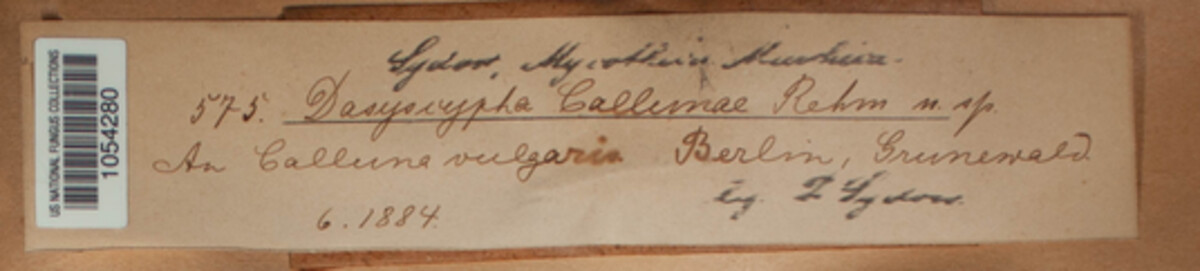 US NATIONAL FUNGUS COLLECTIONS
1054280
Sydow, Mycotheca Marchica.
575. Dasyscypha Callunae Rehm n. sp.
An Calluna vulgaris Berlin, Grunewald.
leg. P Sydow.
6. 1884.